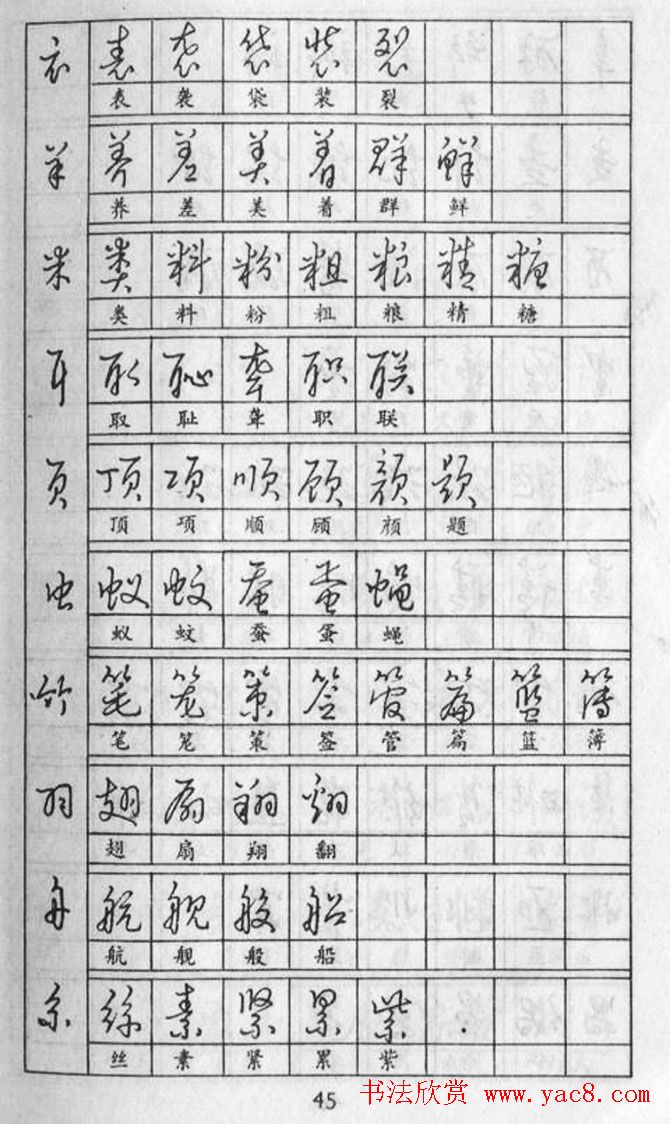 衣 表 袭 袋 装 裂
表 袭 袋 装 裂
羊 养 差 美 着 群 鲜
养 差 美 着 群 鲜
米 类 料 粉 粗 粮 精 糖
类 料 粉 粗 粮 精 糖
耳 取 耻 聋 职 联
取 耻 聋 职 联
页 顶 项 顺 顾 颜 题
顶 项 顺 顾 颜 题
虫 蚁 蚊 蚕 蛋 蝇
蚁 蚊 蚕 蛋 蝇
竹 笔 笼 策 签 管 篇 篮 簿
笔 笼 策 签 管 篇 篮 簿
羽 翅 扇 翔 翻
翅 扇 翔 翻
舟 航 舰 般 船
航 舰 般 船
糸 絲 素 紧 累 紫
丝 素 紧 累 紫
45
书法欣赏 www.yac8.com